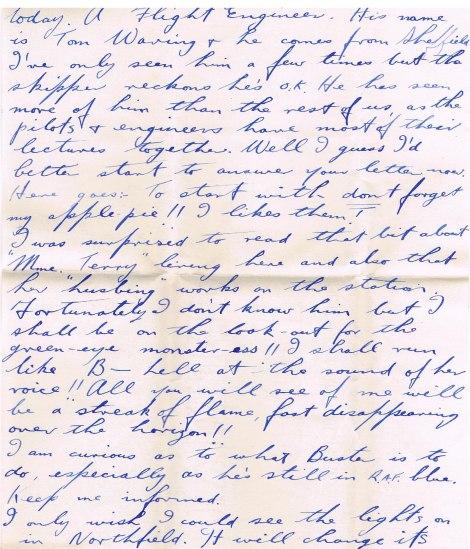 today. A Flight Engineer. His name
is Tom Waring & he comes from Sheffield
I've only seen him a few times but the
skipper reckons he's O.K. He has seen
more of him than the rest of us, as the
pilots & engineers have most of their
lectures together. Well I guess I'd
better start to answer your letter now.
Here goes:- To start with don't forget
my apple pie!! I likes them!
I was surprised to read that bit about
"Mme. Terry" living here and also that
her "husbing" works on the station.
Fortunately I don't know him but I
shall be on the look-out for the
green-eye monster-ess!! I shall run
like B— hell at the sound of her
voice!! All you will see of me will
be a streak of flame, fast disappearing
over the horizon!!
I am curious as to what Buster is to
do, especially as he's still in R.A.F. blue.
Keep me informed.
I only wish I could see the lights on
in Northfield. It will change its